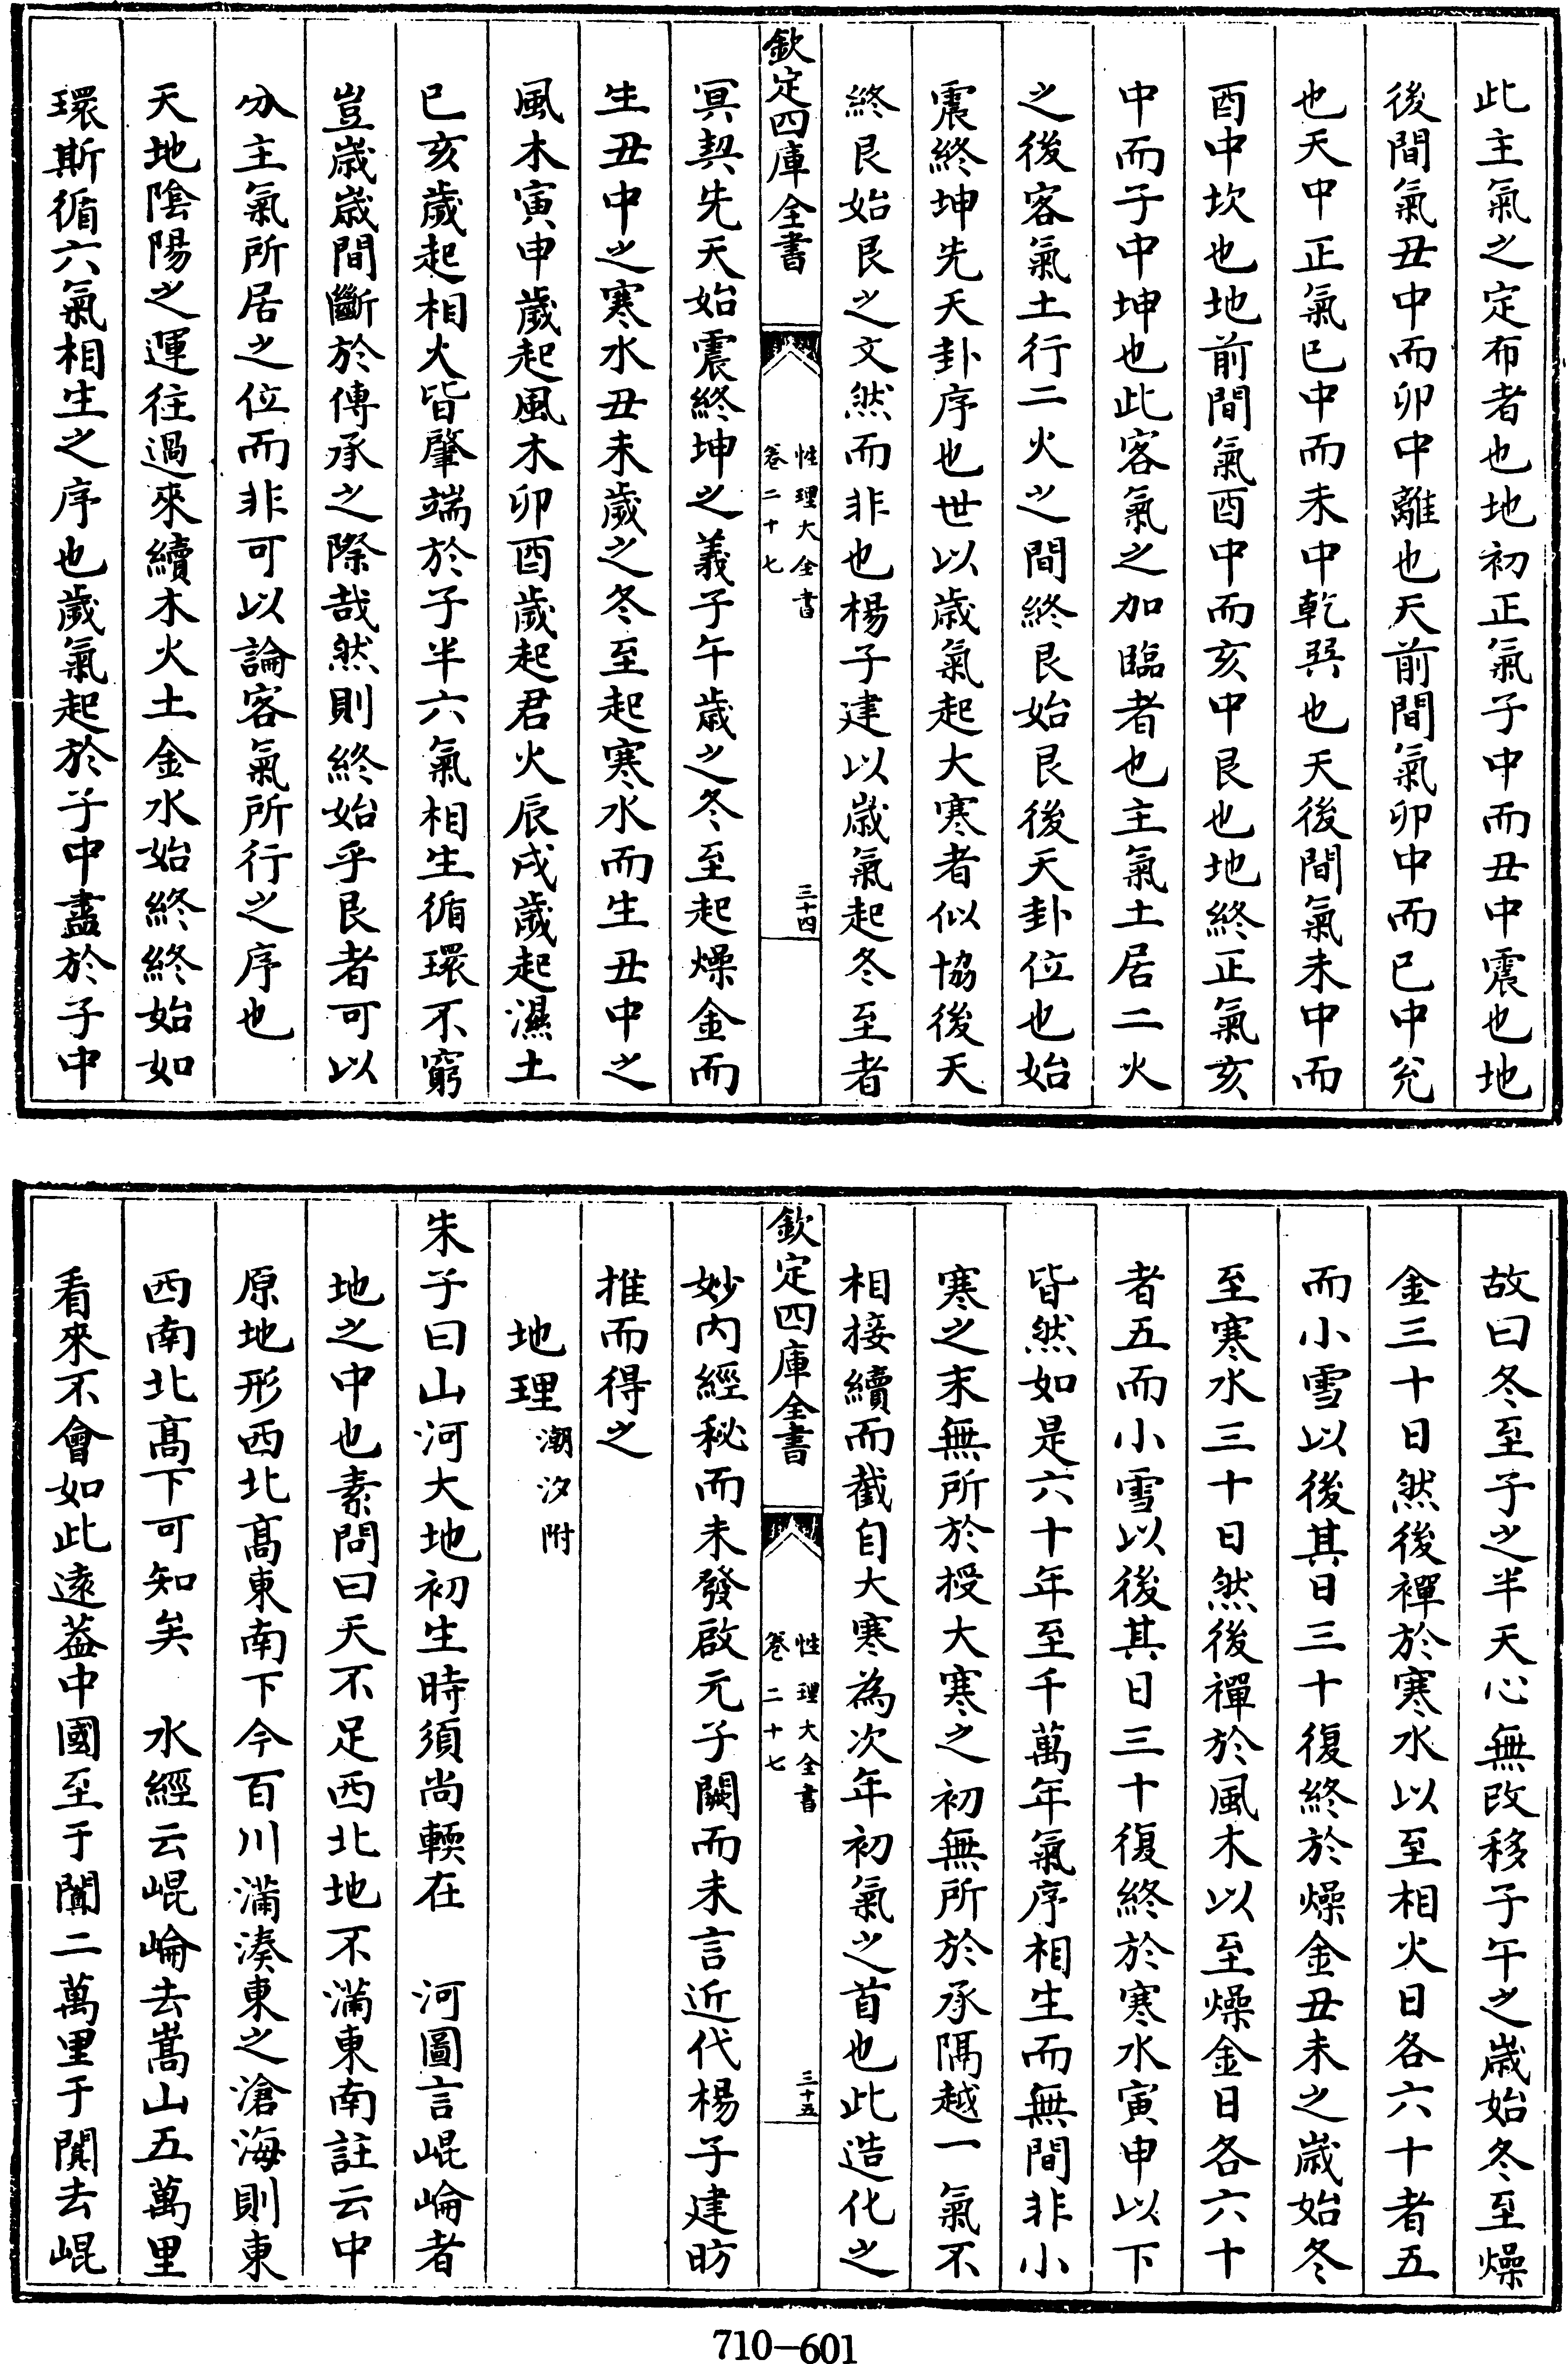 此主氣之定布者也地初正氣子中而丑中震也地
後間氣丑中而卯中離也天前間氣卯中而巳中兊
也天中正氣巳中而未中乾巽也天後間氣未中而
酉中坎也地前間氣酉中而亥中艮也地終正氣亥
中而子中坤也此客氣之加臨者也主氣土居二火
之後客氣土行二火之間終艮始艮後天卦位也始
震終坤先天卦序也世以歳氣起大寒者似協後天
終艮始艮之文然而非也楊子建以歳氣起冬至者
欽定四庫全書
性理大全書
卷二十七
三十四
冥契先天始震終坤之義子午歳之冬至起燥金而
生丑中之寒水丑未歲之冬至起寒水而生丑中之
風木寅申歲起風木卯酉歲起君火辰戌歲起濕土
巳亥歲起相火皆肇端於子半六氣相生循環不窮
豈歳歳間斷於傳承之際哉然則終始乎艮者可以
分主氣所居之位而非可以論客氣所行之序也
天地陰陽之運往過來續木火土金水始終終始如
環斯循六氣相生之序也歲氣起於子中盡於子中
故曰冬至子之半天心無改移子午之歳始冬至燥
金三十日然後禪於寒水以至相火日各六十者五
而小雪以後其日三十復終於燥金丑未之歳始冬
至寒水三十日然後禪於風木以至燥金日各六十
者五而小雪以後其日三十復終於寒水寅申以下
皆然如是六十年至千萬年氣序相生而無間非小
寒之末無所於授大寒之初無所於承隔越一氣不
相接續而截自大寒為次年初氣之首也此造化之
欽定四庫全書
性理大全書
卷二十七
三十五
妙内經秘而未發啟元子闕而未言近代楊子建昉
推而得之
地理潮汐附
朱子曰山河大地初生時須尚輭在　河圖言崐崘者
地之中也素問曰天不足西北地不滿東南註云中
原地形西北髙東南下今百川滿湊東之滄海則東
西南北髙下可知矣　水經云崐崘去嵩山五萬里
看來不會如此遠葢中國至于闐二萬里于闐去崐
710-601